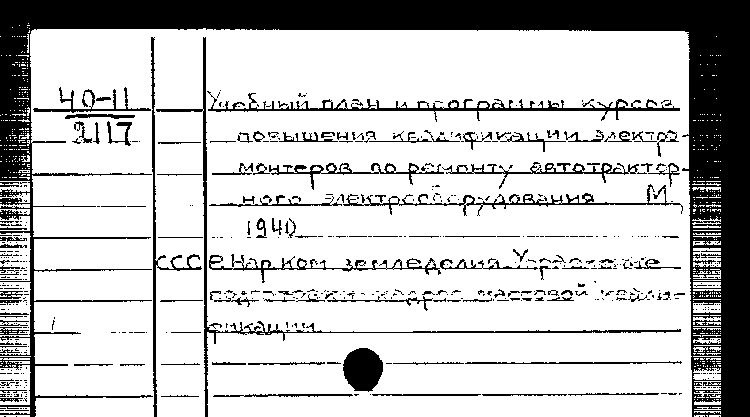 40-11
2117
Учебный план и программы курсов
повышения квалификации электро-
монтеров по ремонту автотрактор-
ного электрооборудования М.,
1940
СССР. Нарком земледелия. Управление
подготовки кадров массовой квали-
фикации